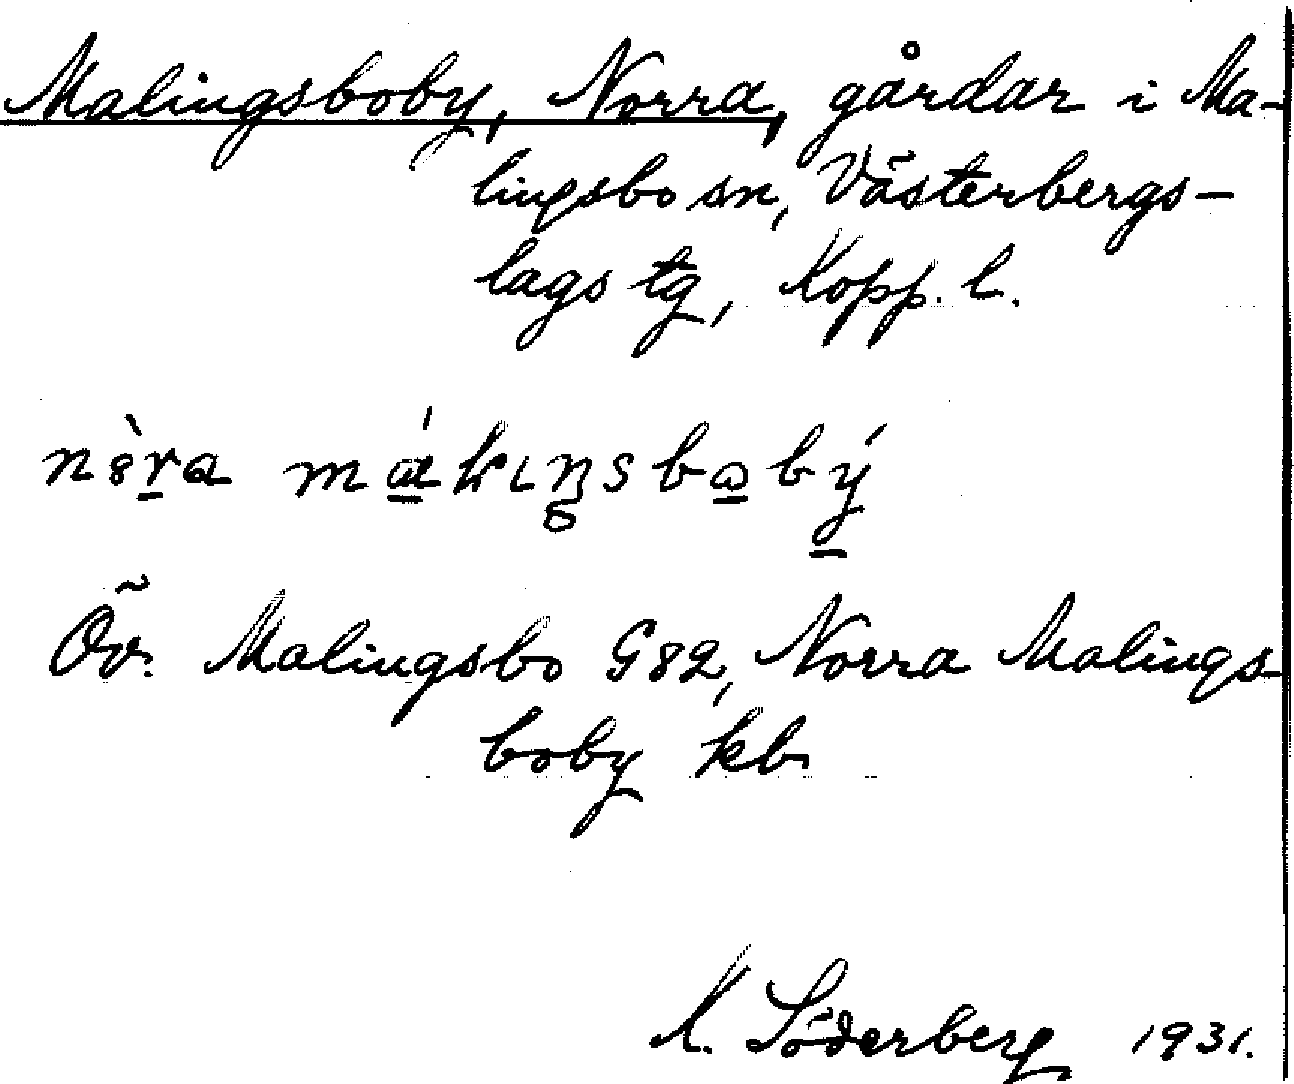 Malingsboby, Norra, gårdar i Ma-
lingsbo sn, Västerbergs-
lags tg, Kopp. l.
Öv. Malingsbo G82, Norra Malings-
boby kb
K. Söderberg 1931.